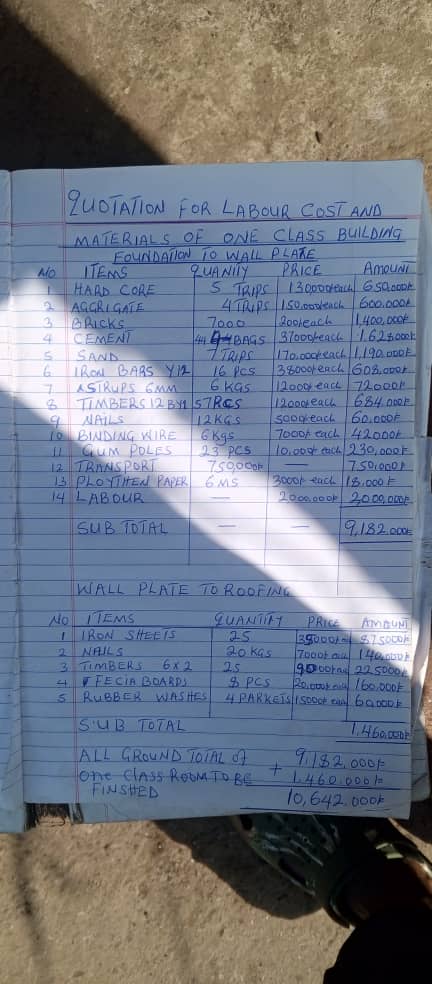 QUOTATION FOR LABOUR COST AND
MATERIALS OF ONE CLASS BUILDING
FOUNDATION TO WALL PLATE
NO ITEMS QUANITY PRICE AMOUNT
1 HARD CORE 5 TRIPS 130000/each 650.000/=
2 AGGRIGATE 4 TRIPS 150.000/each 600.000/=
3 BRICKS 7000 200/each 1,400,000/=
4 CEMENT 44 BAGS 37000/each 1.628000/=
5 SAND 7 TRIPS 170.000/each 1,190.000/=
6 IRON BARS Y12 16 PCS 38000/each 608.000/=
7 STRUPS 6MM 6 KGS 12000/each 72000/=
8 TIMBERS 12 BY1 57PCS 12000/each 684.000/=
9 NAILS 12KGS 5000/each 60.000/=
10 BINDING WIRE 6kgs 7000/= each 42000/=
11 GUM POLES 23 PCS 10,000/= each 230,000/=
12 TRANSPORT 750,000/= — 750.000/=
13 PLOYTHEN PAPER 6 MS 3000/= each 18,000/=
14 LABOUR — 2000,000/= 2,000.000/=
SUB TOTAL — — 9,182.000/=
WALL PLATE TO ROOFING
NO ITEMS QUANTITY PRICE AMOUNT
1 IRON SHEETS 25 35000/= 875000/=
2 NAILS 20 KGS 7000/= each 140,000/=
3 TIMBERS 6X2 25 9000/= each 225000/=
4 FECIA BOARDS 8 PCS 20,000/= each 160,000/=
5 RUBBER WASHES 4 PARKETS 15000/= each 60,000/=
SUB TOTAL 1,460,000/=
ALL GROUND TOTAL of 9,182.000/=
one CLASS ROOM TO BE + 1.460.000/=
FINSHED 10,642.000/=